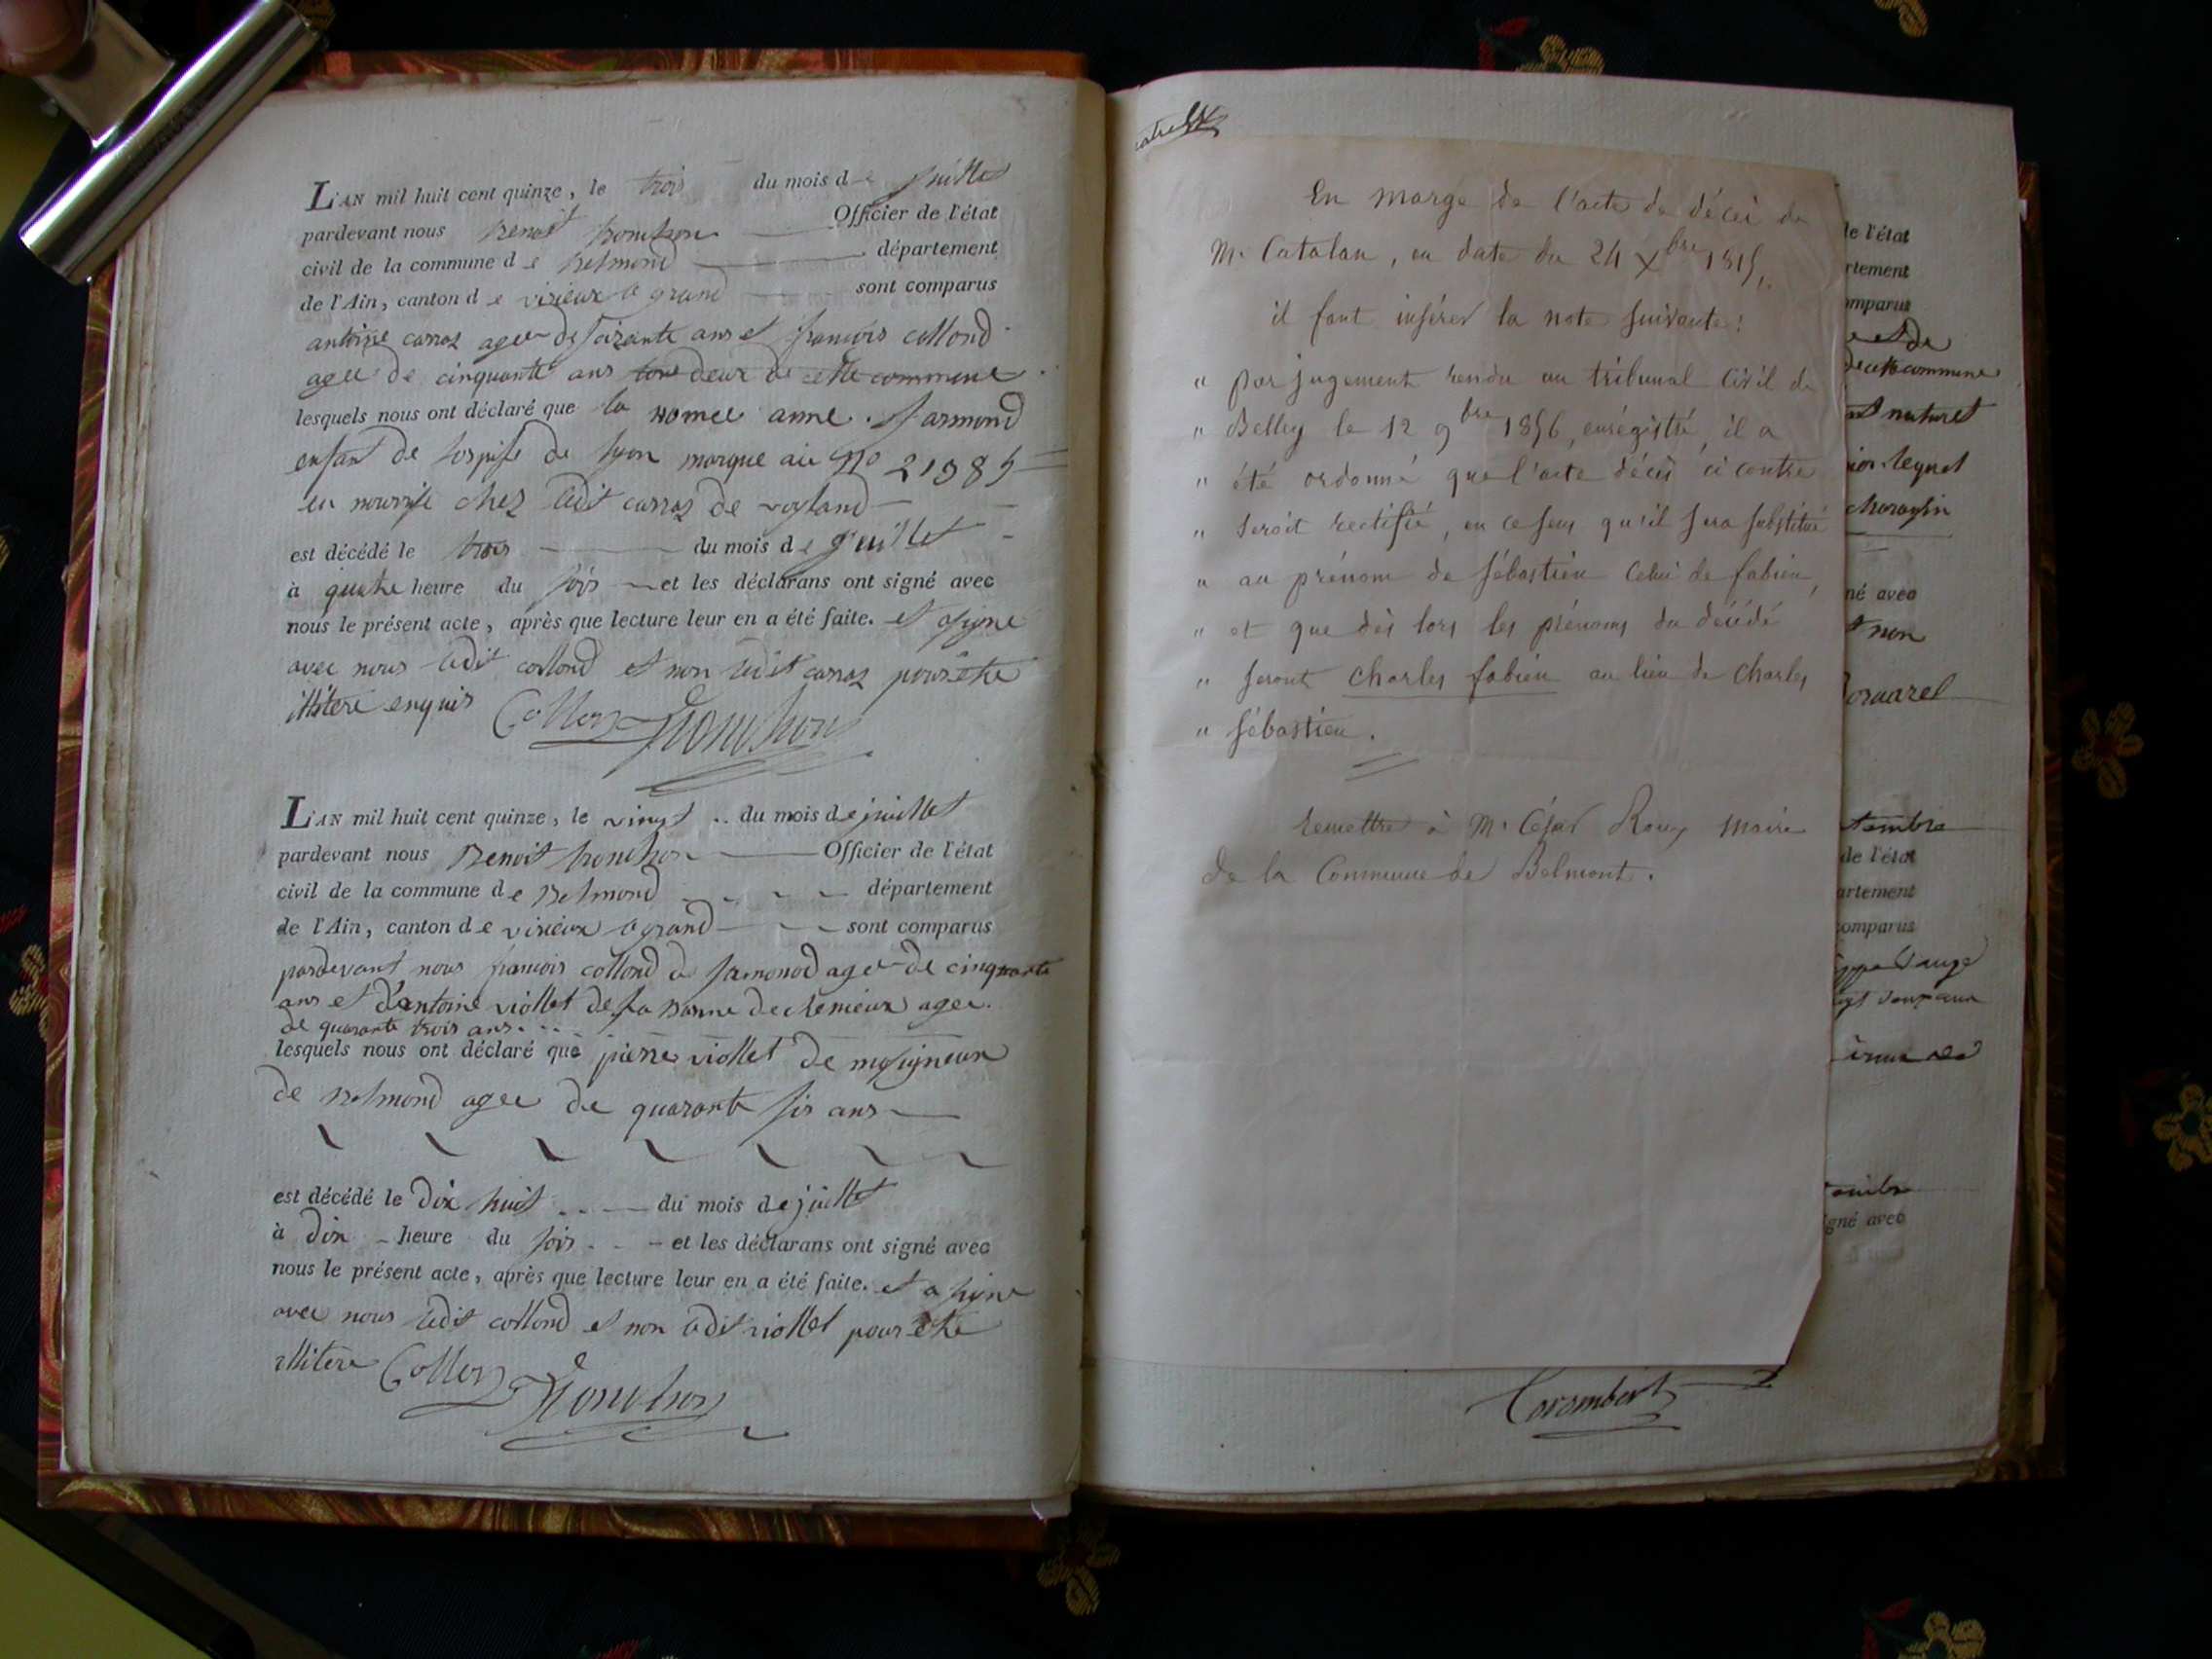 L'AN mil huit cent quinze, le trois du mois de juillet
pardevant nous Benoit Officier de l'état
civil de la commune de Belmond département
de l'Ain, canton de virieux le grand sont comparus
antoine carraz agee de soizante ans et francois collond
agee de cinquante ans tous deux de cette commune
lesquels nous ont déclaré que la nomee anne . jarmond
enfant de hospise de lyon marque au No 21985
en nourrise chez ledit carraz de vogland
est décédé le trois du mois de juillet
à quatre heure du soir et les déclarans ont signé avec
nous le présent acte, après que lecture leur en a été faite. et a signe
avec nous ledit collond et non ledit carraz pour être
illitere enquis Collon
L'AN mil huit cent quinze, le vingt .. du mois de juillet
pardevant nous Benoit Officier de l'état
civil de la commune de Belmond département
de l'Ain, canton de virieux le grand sont comparus
pardevant nous francois collond de agee de cinquante
ans et d'antoine viollet de chemieux agee.
de quarante trois ans. . .
lesquels nous ont déclaré que pierre viollet de
de Belmond agee de quarante sis ans
est décédé le dix huit . . du mois de juillet
à dix heure du soir . . et les déclarans ont signé avec
nous le présent acte, après que lecture leur en a été faite. et a signe
avec nous ledit collond et non ledit viollet pour être
illitere Collon
En marge de l'acte de décès de
Mr Catalan, en date du 24 Xbre 1815,
il faut insérer la note suivante :
" par jugement rendu au tribunal Civil de
" Belley le 12 9bre 1856, enrégistré, il a
" été ordonné que l'acte décès ci contre
" seroit rectifié, en ce sens qu'il sera substitué
" au prénom de Sébastien celui de fabien,
" et que dès lors les prénoms du décédé
" seront charles fabien au lieu de charles
" Sébastien.
remettre à Mr César Rouy Maire
de la Commune de Belmont.
de l'état
rtement
omparus
et de
de cette commune
naturel
lequel
né avec
t non
tembre
de l'état
artement
omparus
gné avec
Corombert